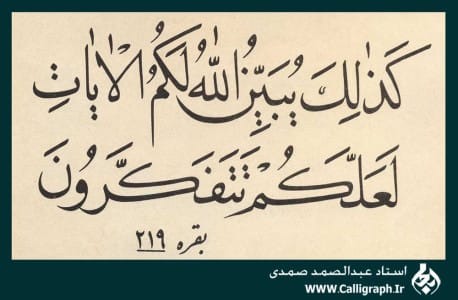 كَذٰلِكَ يُبَيِّنُ اللّٰهُ لَكُمُ الْاٰيٰاتِ
لَعَلَّكُمْ تَتَفَكَّرُونَ
بقره ٢١٩
استاد عبدالصمد صمدی
www.Calligraph.Ir